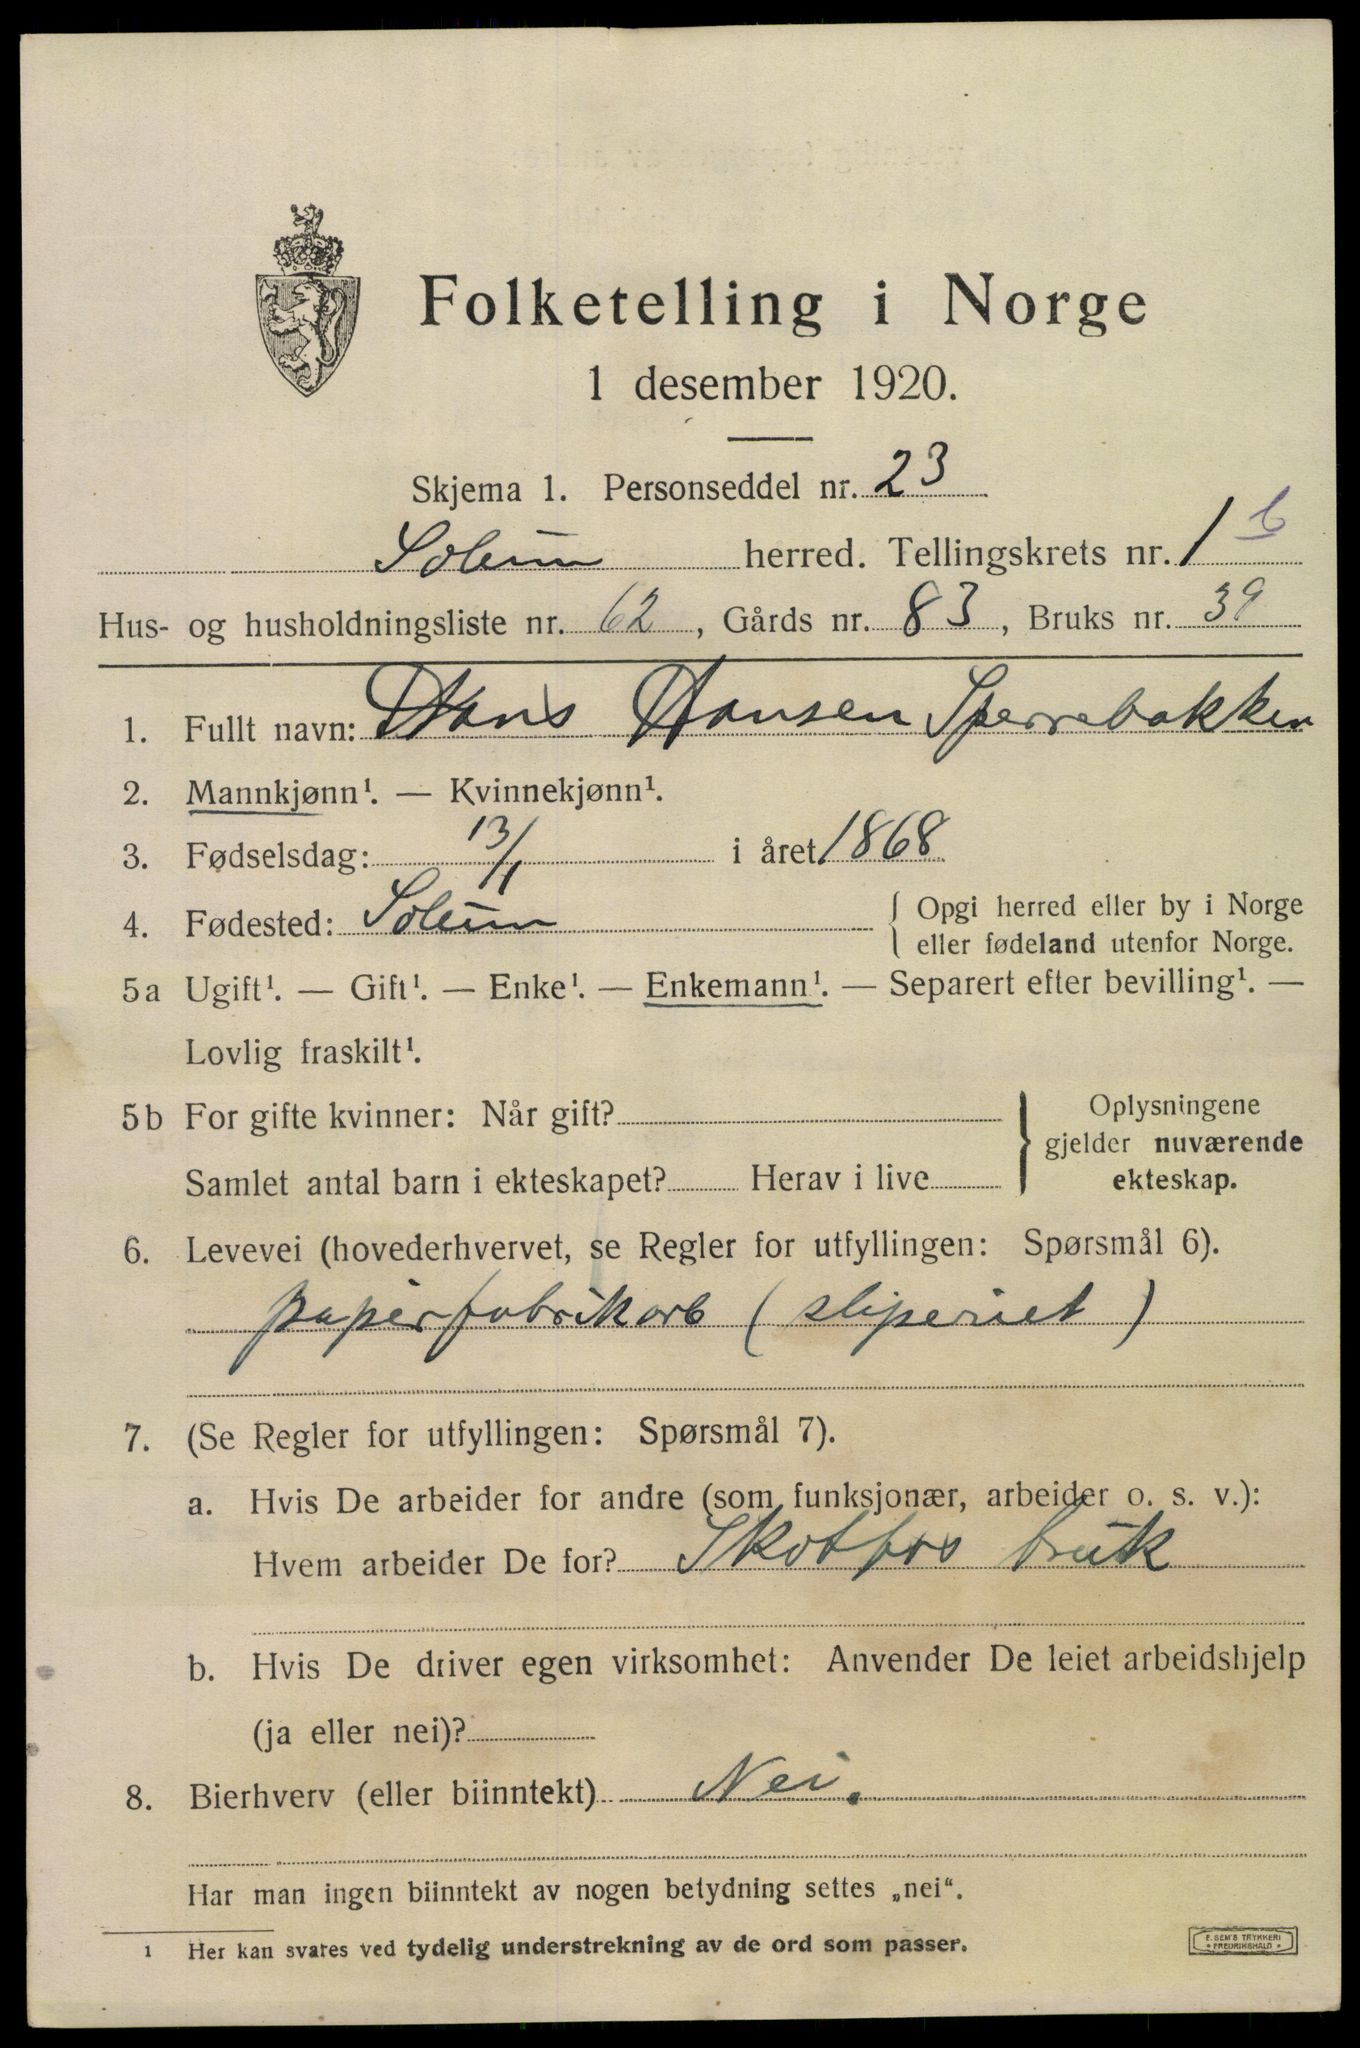 Folketelling i Norge
1 desember 1920.
Skjema 1. Personseddel nr. 23
Solum herred. Tellingskrets nr. 1 b
Hus- og husholdningsliste nr. 62, Gårds nr. 83, Bruks nr. 39
1. Fullt navn: Hans Hansen Sperrebakken
2. Mannkjønn¹. — Kvinnekjønn¹.
3. Fødselsdag: 13/1 i året 1868
4. Fødested: Solum { Opgi herred eller by i Norge
eller fødeland utenfor Norge.
5a Ugift¹. — Gift¹. — Enke¹. — Enkemann¹. — Separert efter bevilling¹. —
Lovlig fraskilt¹.
5b For gifte kvinner: Når gift? } Oplysningene
gjelder nuværende
Samlet antal barn i ekteskapet? Herav i live ekteskap.
6. Levevei (hovederhvervet, se Regler for utfyllingen: Spørsmål 6).
papirfabrikarb (sliperiet)
7. (Se Regler for utfyllingen: Spørsmål 7).
a. Hvis De arbeider for andre (som funksjonær, arbeider o. s. v.):
Hvem arbeider De for? Skotfos bruk
b. Hvis De driver egen virksomhet: Anvender De leiet arbeidshjelp
(ja eller nei)?
8. Bierhverv (eller biinntekt) Nei.
Har man ingen biinntekt av nogen betydning settes „nei“.
¹ Her kan svares ved tydelig understrekning av de ord som passer.
E. SEM'S TRYKKERI
• FREDRIKSHALD •